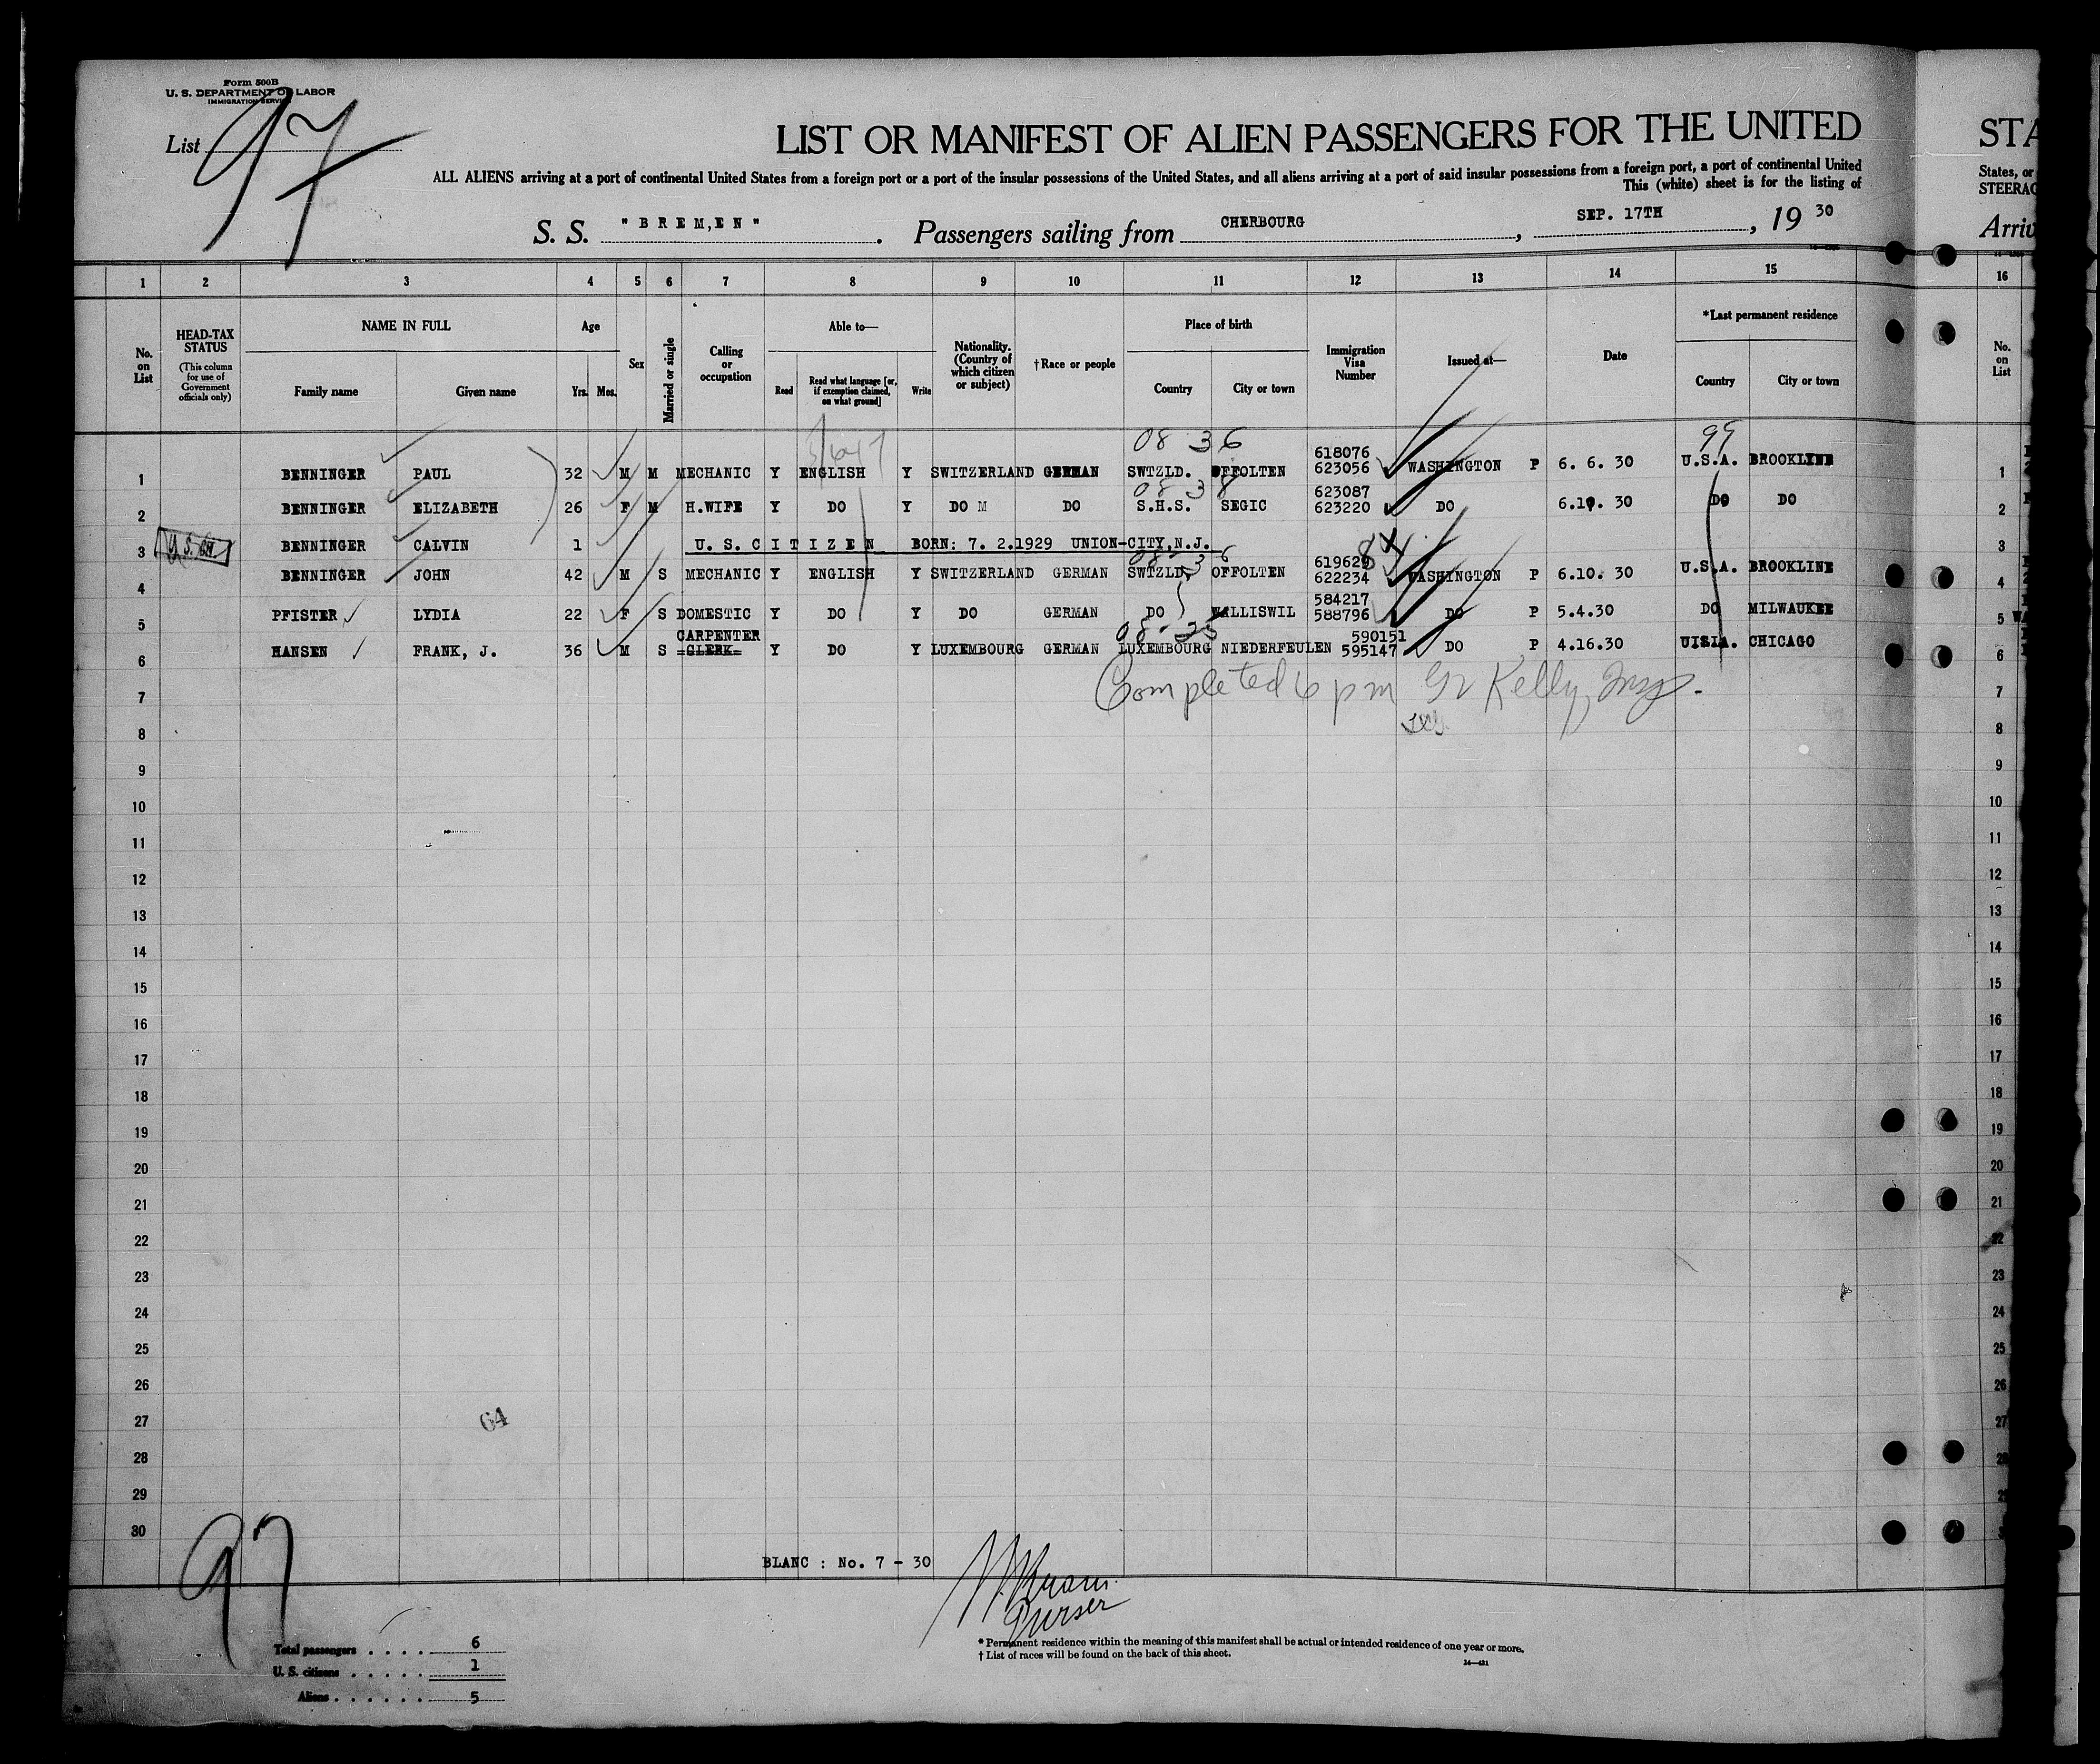 Form 500B
U. S. DEPARTMENT OF LABOR
IMMIGRATION SERVICE
List 97
LIST OR MANIFEST OF ALIEN PASSENGERS FOR THE UNITED
STA
ALL ALIENS arriving at a port of continental United States from a foreign port or a port of the insular possessions of the United States, and all aliens arriving at a port of said insular possessions from a foreign port, a port of continental United
States, or
This (white) sheet is for the listing of
STEERAG
S. S. "BREM,EN". Passengers sailing from CHERBOURG, SEP. 17TH, 19 30
Arriv
1 2 3 4 5 6 7 8 9 10 11 12 13 14 15 16
No. on List
HEAD-TAX STATUS
(This column for use of Government officials only)
NAME IN FULL
Family name Given name
Age
Yrs. Mos.
Sex
Married or single
Calling or occupation
Able to—
Read Read what language [or, if exemption claimed, on what ground] Write
Nationality. (Country of which citizen or subject)
†Race or people
Place of birth
Country City or town
Immigration Visa Number
Issued at—
Date
*Last permanent residence
Country City or town
No. on List
08 36 99
618076
1 BENNINGER PAUL 32 M M MECHANIC Y ENGLISH Y SWITZERLAND GERMAN SWTZLD. OFFOLTEN 623056 WASHINGTON P 6. 6. 30 U.S.A. BROOKLINE 1
08 38 623087
2 BENNINGER ELIZABETH 26 F M H.WIFE Y DO Y DO M DO S.H.S. SEGIC 623220 DO 6.10. 30 DO DO 2
3 BENNINGER CALVIN 1 U. S. CITIZEN BORN: 7. 2.1929 UNION-CITY,N.J. 3
08-36 84 619629
4 BENNINGER JOHN 42 M S MECHANIC Y ENGLISH Y SWITZERLAND GERMAN SWTZLD. OFFOLTEN 622234 WASHINGTON P 6.10. 30 U.S.A. BROOKLINE 4
584217
5 PFISTER LYDIA 22 F S DOMESTIC Y DO Y DO GERMAN DO WALLISWIL 588796 DO P 5.4.30 DO MILWAUKEE 5
CARPENTER 08-25 590151
6 HANSEN FRANK, J. 36 M S CLERK Y DO Y LUXEMBOURG GERMAN LUXEMBOURG NIEDERFEULEN 595147 DO P 4.16.30 UISIA. CHICAGO 6
Completed 6 pm Kelly, Insp.
7 7
8 8
9 9
10 10
11 11
12 12
13 13
14 14
15 15
16 16
17 17
18 18
19 19
20 20
21 21
22 22
23 23
24 24
25 25
26 26
27 64 27
28 28
29
30
97
BLANC : No. 7 - 30
Purser
Total passengers . . . . 6
U. S. citizens . . . . . 1
Aliens . . . . . . 5
* Permanent residence within the meaning of this manifest shall be actual or intended residence of one year or more.
† List of races will be found on the back of this sheet.
14—421